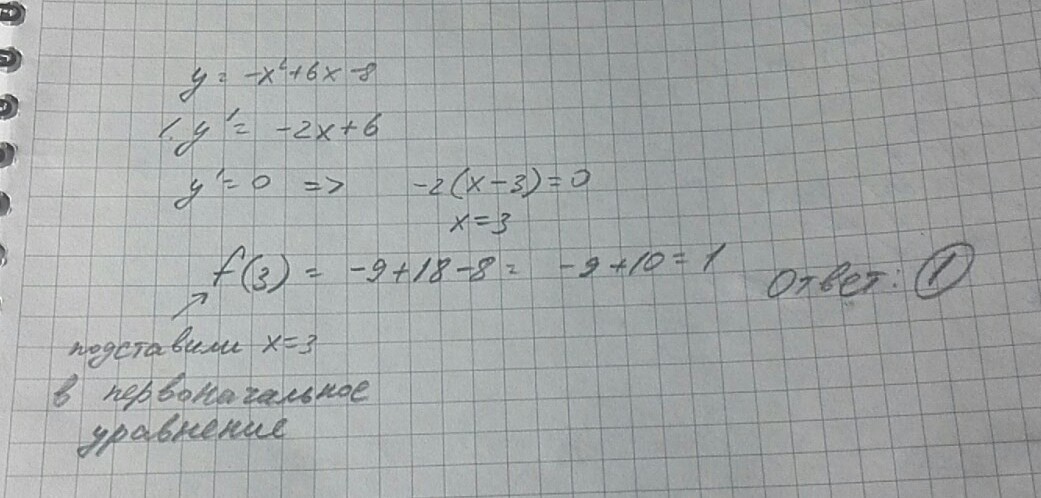 y = -x²+6x-8
1. y' = -2x+6
y'=0 => -2(x-3)=0
x=3
f(3) = -9+18-8 = -9+10=1 Ответ: 1
подставили x=3
в первоначальное
уравнение